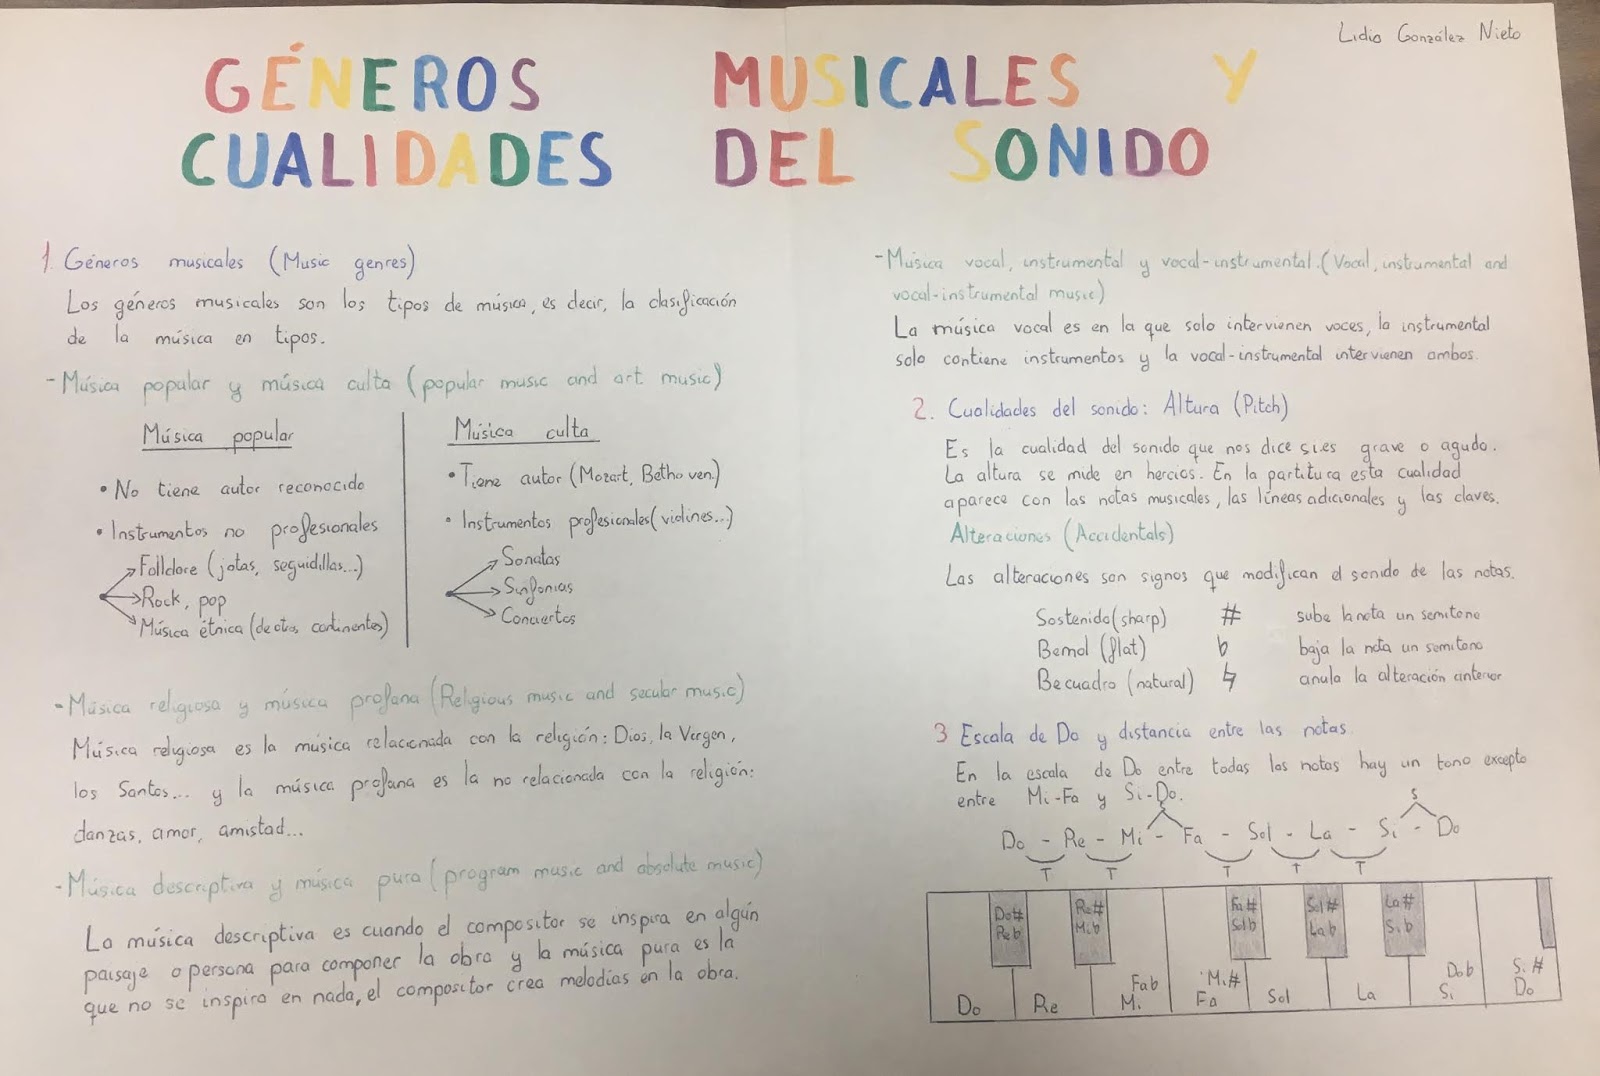 Lidia González Nieto
GÉNEROS MUSICALES Y
CUALIDADES DEL SONIDO
1. Géneros musicales (Music genres)
Los géneros musicales son los tipos de música, es decir, la clasificación
de la música en tipos.
- Música popular y música culta (popular music and art music)
Música popular
• No tiene autor reconocido
• Instrumentos no profesionales
Folclore (jotas, seguidillas...)
Rock, pop
Música étnica (de otros continentes)
Música culta
• Tiene autor (Mozart, Bethoven)
• Instrumentos profesionales (violines...)
Sonatas
Sinfonias
Conciertos
- Música religiosa y música profana (Religious music and secular music)
Música religiosa es la música relacionada con la religión: Dios, la Virgen,
los Santos... y la música profana es la no relacionada con la religión:
danzas, amor, amistad...
- Música descriptiva y música pura (program music and absolute music)
La música descriptiva es cuando el compositor se inspira en algún
paisaje o persona para componer la obra y la música pura es la
que no se inspira en nada, el compositor crea melodías en la obra.
- Música vocal, instrumental y vocal-instrumental. (Vocal, instrumental and
vocal-instrumental music)
La música vocal es en la que solo intervienen voces, la instrumental
solo contiene instrumentos y la vocal-instrumental intervienen ambos.
2. Cualidades del sonido: Altura (Pitch)
Es la cualidad del sonido que nos dice si es grave o agudo.
La altura se mide en hercios. En la partitura esta cualidad
aparece con las notas musicales, las líneas adicionales y las claves.
Alteraciones (Accidentals)
Las alteraciones son signos que modifican el sonido de las notas.
Sostenido (sharp) # sube la nota un semitono
Bemol (flat) b baja la nota un semitono
Becuadro (natural) ♮ anula la alteración anterior
3 Escala de Do y distancia entre las notas.
En la escala de Do entre todas las notas hay un tono excepto
entre Mi-Fa y Si-Do.
S S
Do - Re - Mi - Fa - Sol - La - Si - Do
T T T T T
Do# Re# Fa# Sol# La#
Reb Mib Solb Lab Sib
Fab Mi# Dob Si#
Do Re Mi Fa Sol La Si Do